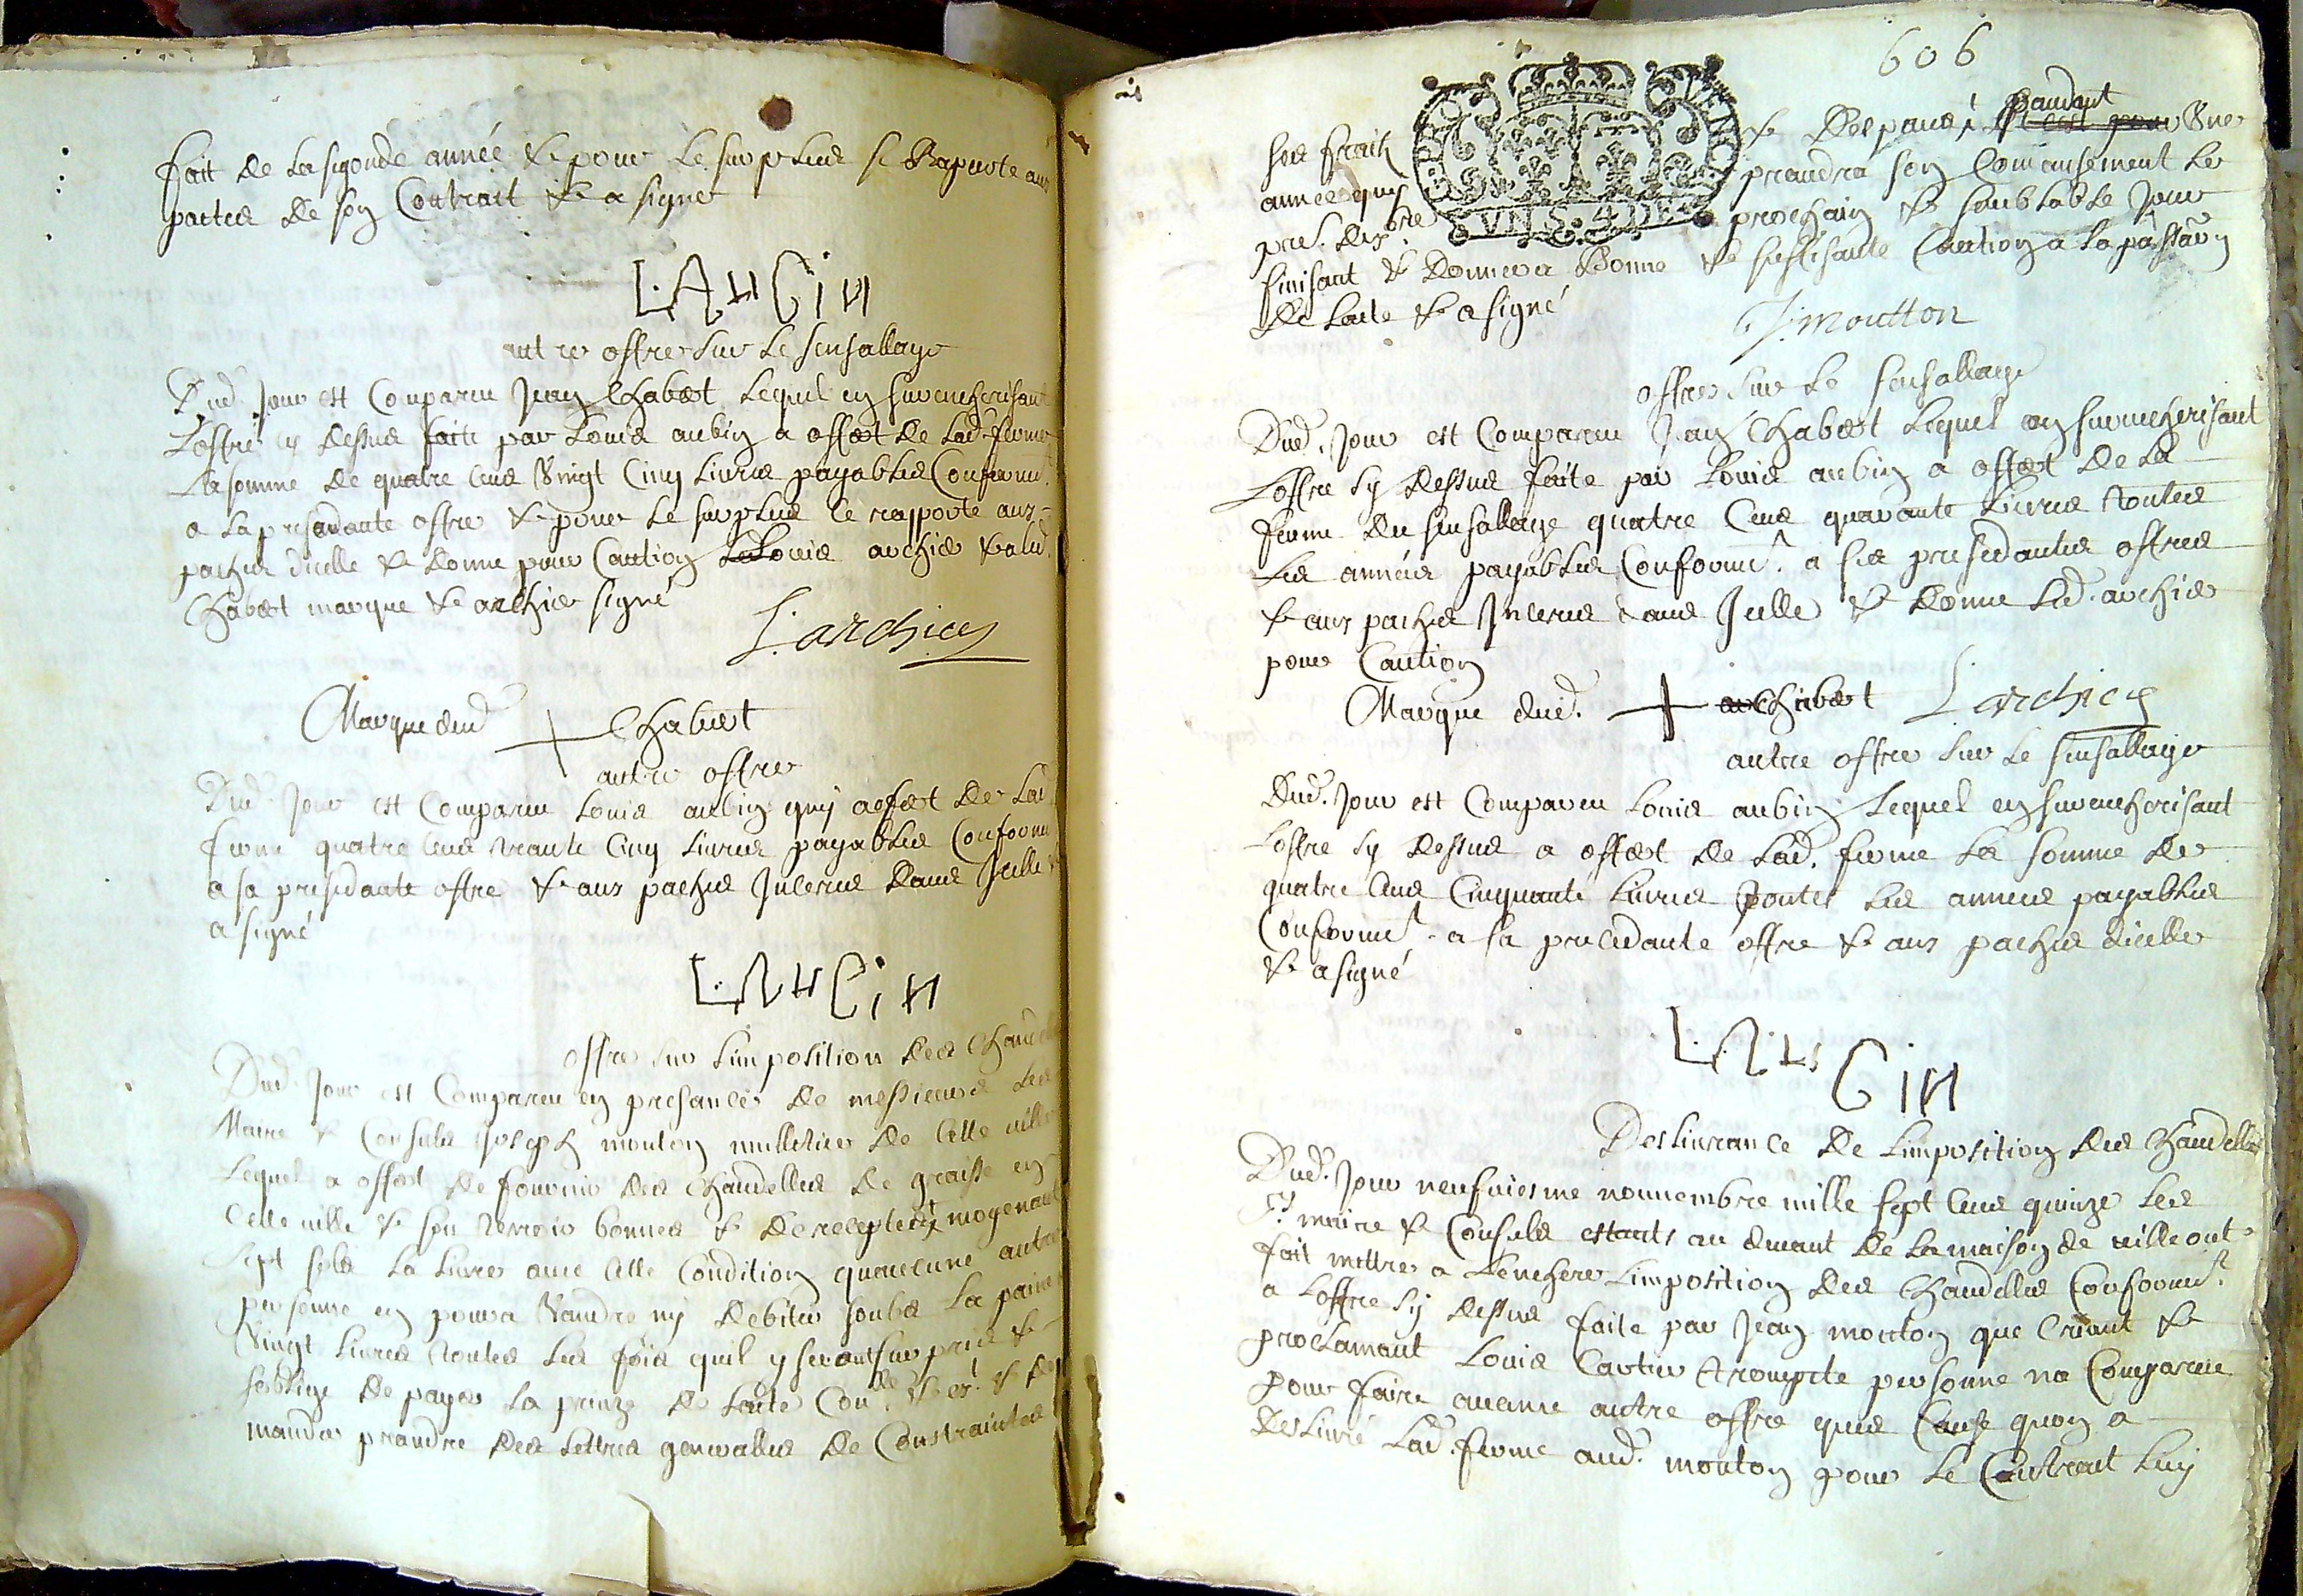 fait de la segonde année & pour le surplus se Raporte aux
pactes de son Contrait & a signe
L. AUBIN
autre offre sur le sensallage
Dud. jour est Comparu Jean Chabert lequel en surencherisant
L'offre cy dessus faite par Louis aubin a offert de lad. ferme
La somme de quatre cens vingt Cinq Livres payables Conformt.
a la presedante offre & pour le surplus se rapporte aux
paches dicelle & donne pour Caution Louis archier & led.
Chabert marque & archier signé
L. archier
Marque dud. + Chabert
autre offre
Dud. jour est Comparu Louis aubin quy a offert de lad.
ferme quatre cens trante Cinq Livres payables Conformt.
a sa presedante offre & aux paches Incerés dans Icelle &
a signé
L. AUBIN
offre sur limposition des Chandelles
Dud. jour est Comparu en presance de messieurs les
Maire & Consuls Joseph mouton mulletier de cette ville
Lequel a offert de fournir des Chandelles de graisse en
cette ville & son terroir bonnes & de recepte moyenant
sept sols la Livre avec cette Condition quaucune autre
personne en pourra vandre ny debiter soubs la paine
Vingt Livres toutes les fois quil y seront surpris &
soblige de payer la prinze de laite Conde. & es. & de
mander prandre des Lettres generalles de Constraintes
606
ses fraix & despans & pandant Une
année quy prandra son Comansement le
pre. dexbre prochain & semblable jour
finisant & donnera Bonne & suffisante Caution a la passaon
de lacte & a signé
J. moutton
offre sur le sensallage
Dud. jour est Comparu Jean Chabert lequel en surencherisant
Loffre sy dessus faite par Louis aubin a offert de la
ferme du sensallage quatre Cens quarante Livres toutes
les années payables Conformt. a ses presedantes offres
& aux paches Incerés dans Icelle & donne led. archier
pour Caution
Marque dud. + Chabert L. archier
autre offre sur le sensallage
Dud. jour est Comparu Louis aubin lequel en surencherisant
Loffre sy dessus a offert de lad. ferme la somme de
quatre Cens Cinquante Livres toutes les années payables
Conformt. a la precedante offre & aux paches dicelle
& a signé
L. AUBIN
Deslivrance de limposition des Chandelles
Dud. jour neufviesme novembre mille sept cens quinze les
Srs. maire & Consuls estants au devant de la maison de ville ont
fait mettre a Lenchere Limposition des Chandelles Conformt.
a Loffre sy dessus faite par Jean mouton que criant &
proclamant Louis Cartier trompete personne na Comparu
pour faire aucune autre offre qu'es Cause quon a
deslivré lad. ferme aud. mouton pour le Contraut luy